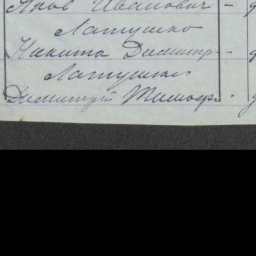 Яков Иванович -
Латушко
Никита Димитр -
Латушко
Димитрій Тимофе -